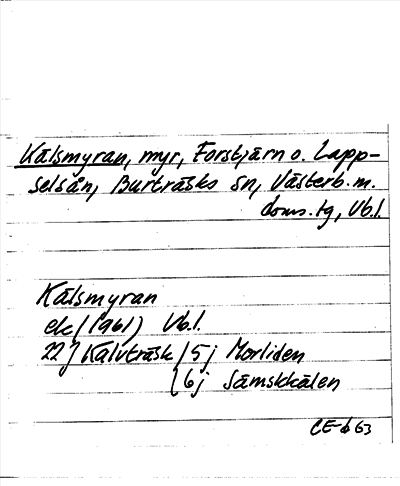 Kålsmyran, myr, Forstjärn o. Lapp-
selsån, Burträsks sn, Västerb. m.
doms.tg, Vb.l.
Kålsmyran
ek (1961) Vb.l.
22J Kalvträsk / 5j Morliden
( 6j Sämskkålen
CE-b 63